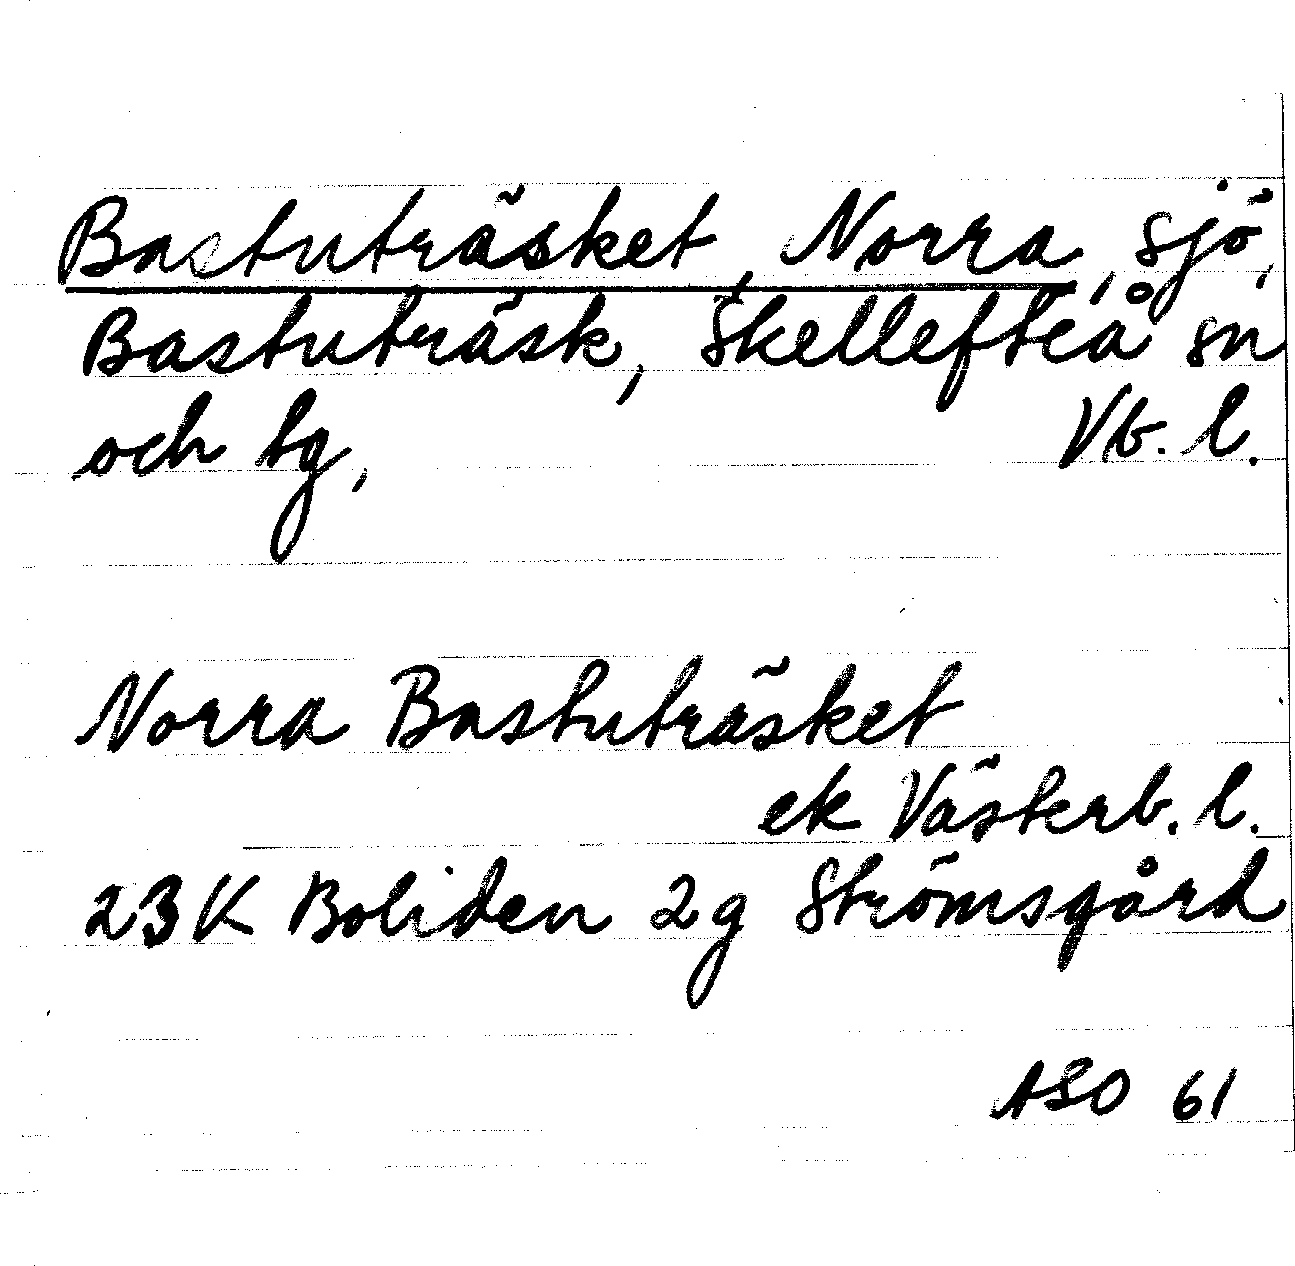 Bastuträsket, Norra, sjö,
Bastuträsk, Skellefteå sn
och tg, Vb. l.
Norra Bastuträsket
ek Västerb. l.
23K Boliden 2g Strömsgård
ASO 61